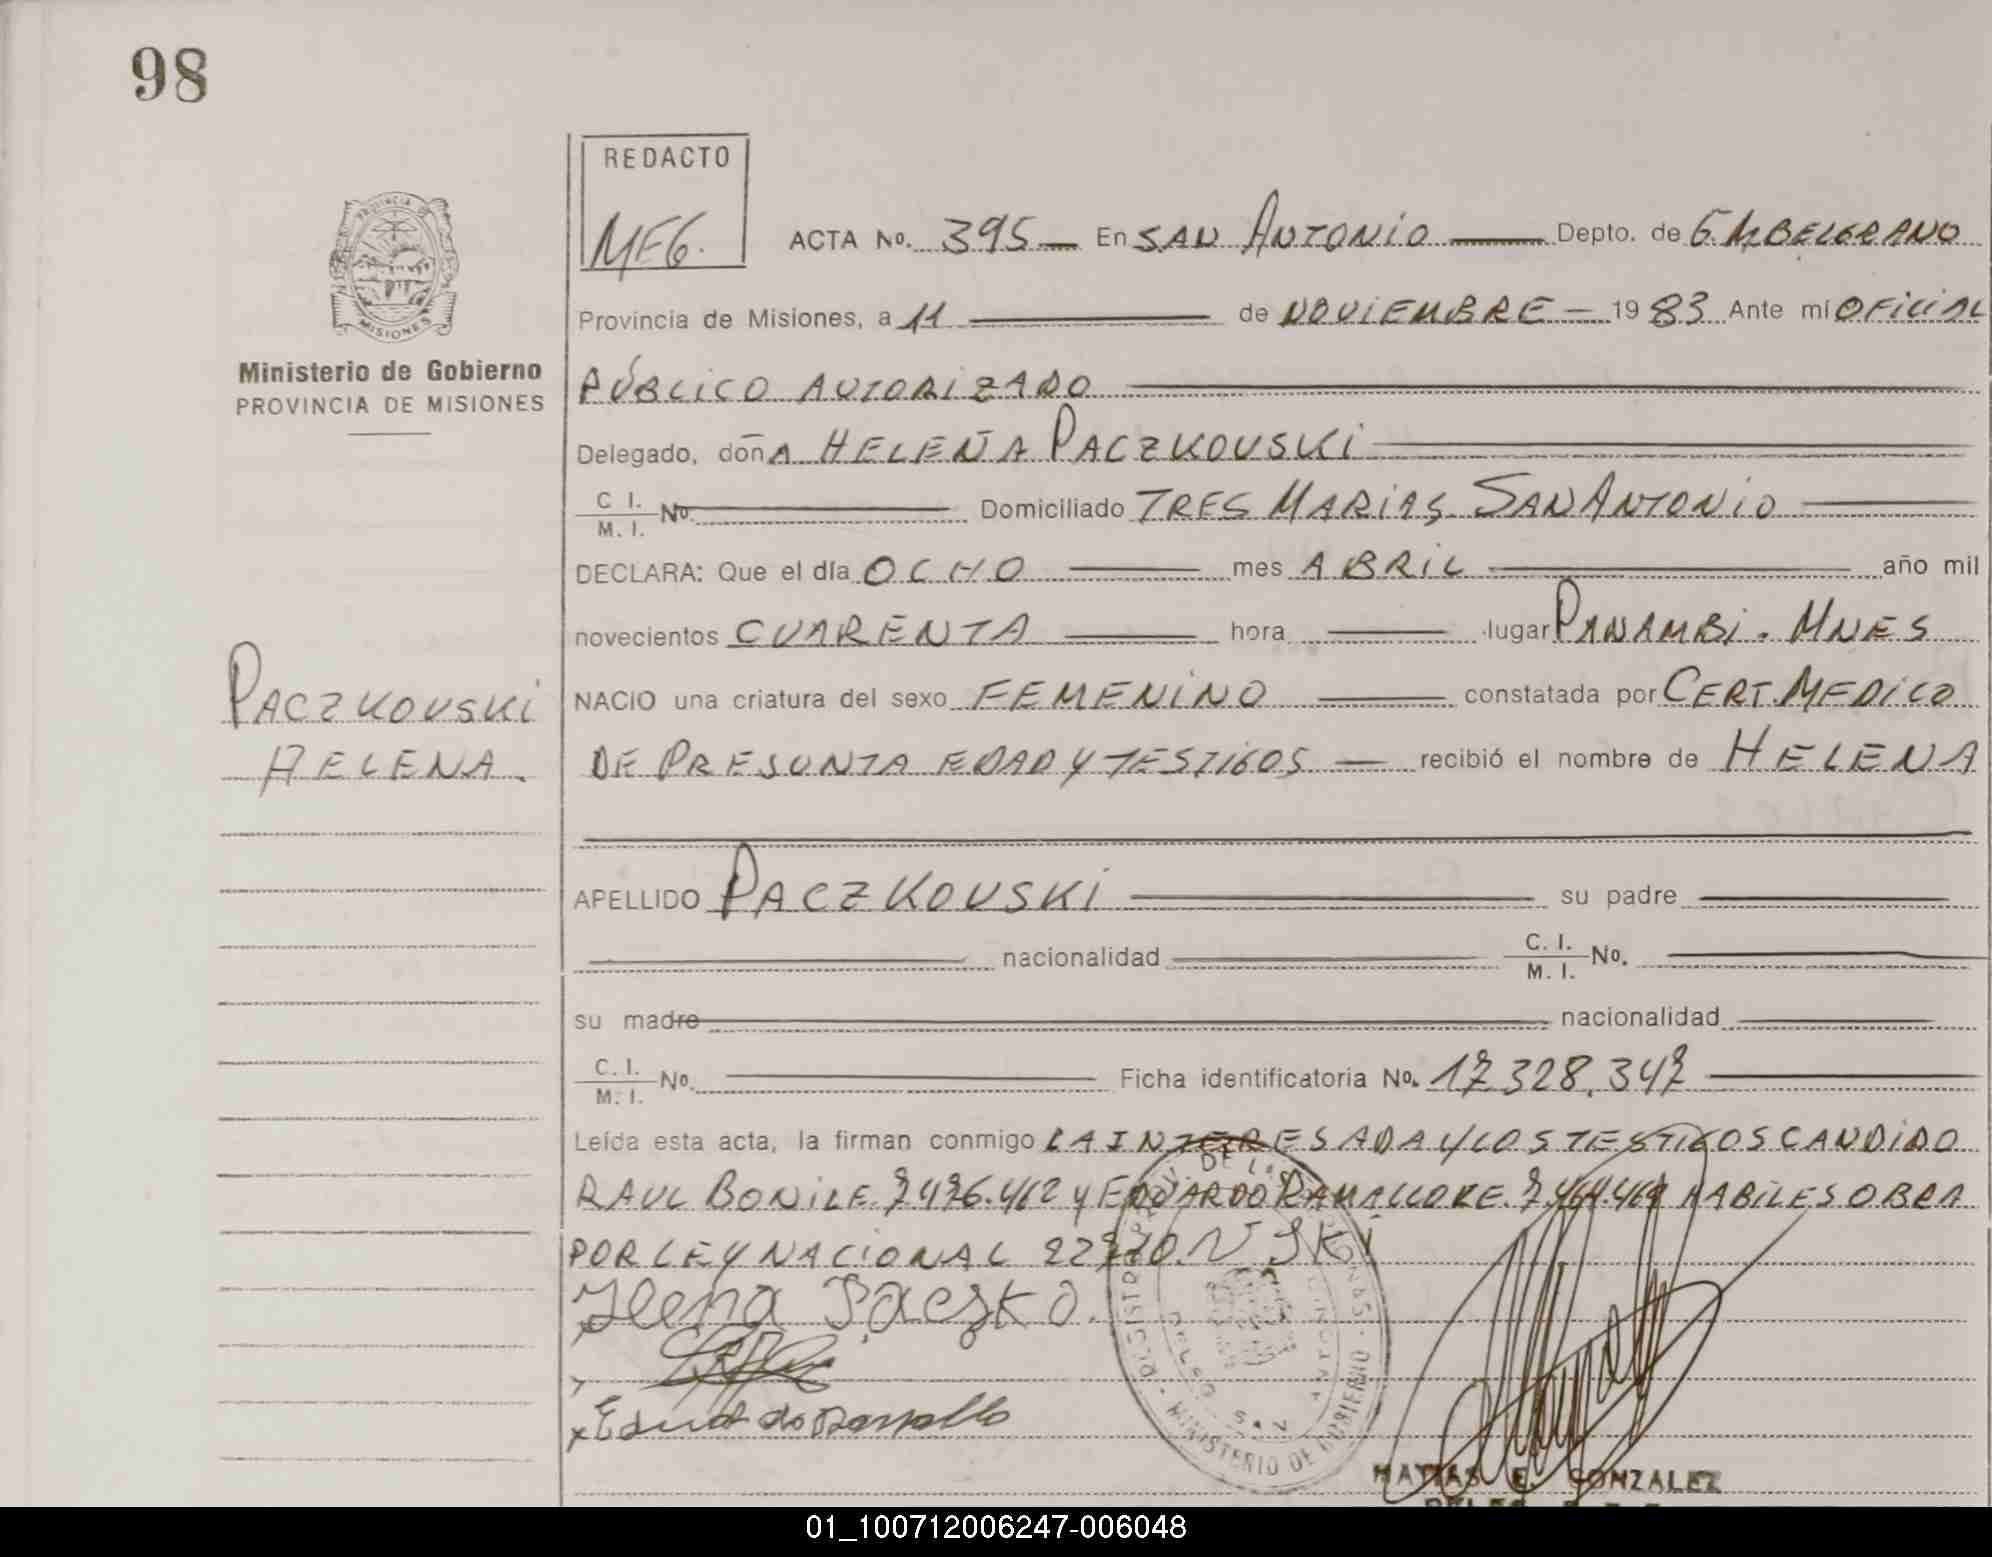 98
REDACTO
MEG.
ACTA No. 395 En SAN ANTONIO Depto. de G. M BELGRANO
Provincia de Misiones, a 11 de NOVIEMBRE 1983 Ante mí OFICIAL
PROVINCIA DE
MISIONES
Ministerio de Gobierno
PROVINCIA DE MISIONES
PÚBLICO AUTORIZADO
Delegado, doñA HELEÑA PACZKOUSKI
C. I. M. I. No. Domiciliado TRES MARIAS SAN ANTONIO
DECLARA: Que el día OCHO mes ABRIL año mil
novecientos CUARENTA hora lugar PANAMBI. MNES
PACZKOUSKI
HELENA.
NACIO una criatura del sexo FEMENINO constatada por CERT. MEDICO
DE PRESUNTA EDAD Y TESTIGOS recibió el nombre de HELENA
APELLIDO PACZKOUSKI su padre
nacionalidad C. I. M. I. No.
su madre nacionalidad
C. I. M. I. No. Ficha identificatoria No. 17 328.347
Leída esta acta, la firman conmigo LA INTERESADA Y LOS TESTIGOS CANDIDO
RAUL BONI LE. 7.476.462 Y EDUARDO RAMALLO LE. HABILES OBRA
POR LEY NACIONAL
NSKI
Ilena Paczko.
x Eduardo Ramallo
MINISTERIO DE GOBIERNO
MATIAS E. GONZALEZ
01_100712006247-006048